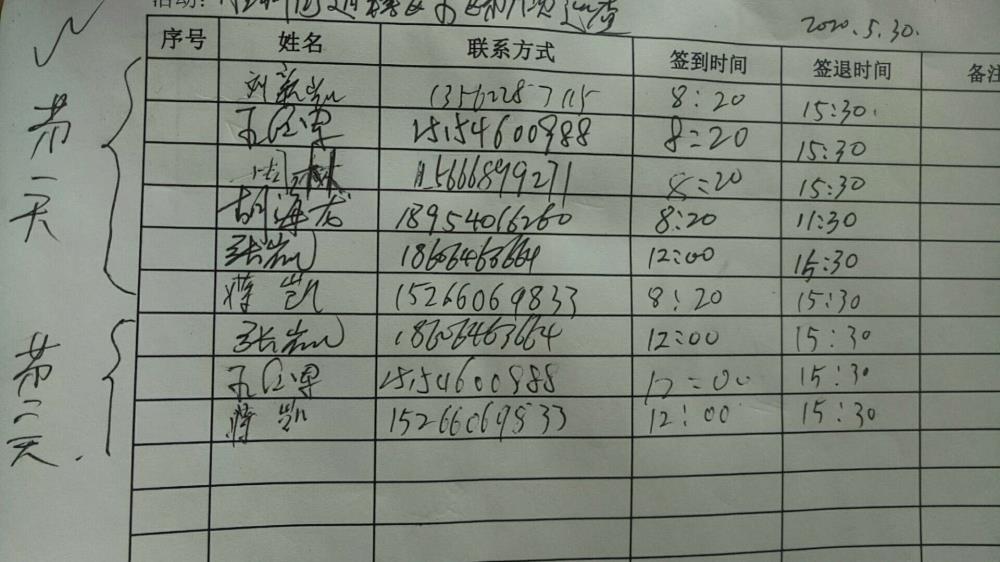 活动：
2020.5.30.
序号 姓名 联系方式 签到时间 签退时间 备注
第一天
13562287115 8:20 15:30.
15154600988 8:20 15:30
15666899271 8:20 15:30
胡海龙 18954016260 8:20 11:30
张岩 18606463664 12:00 15:30
蒋凯 15266069833 8:20 15:30
第二天.
张岩 18606463664 12:00 15:30
15154600988 12:00 15:30
蒋凯 15266069833 12:00 15:30